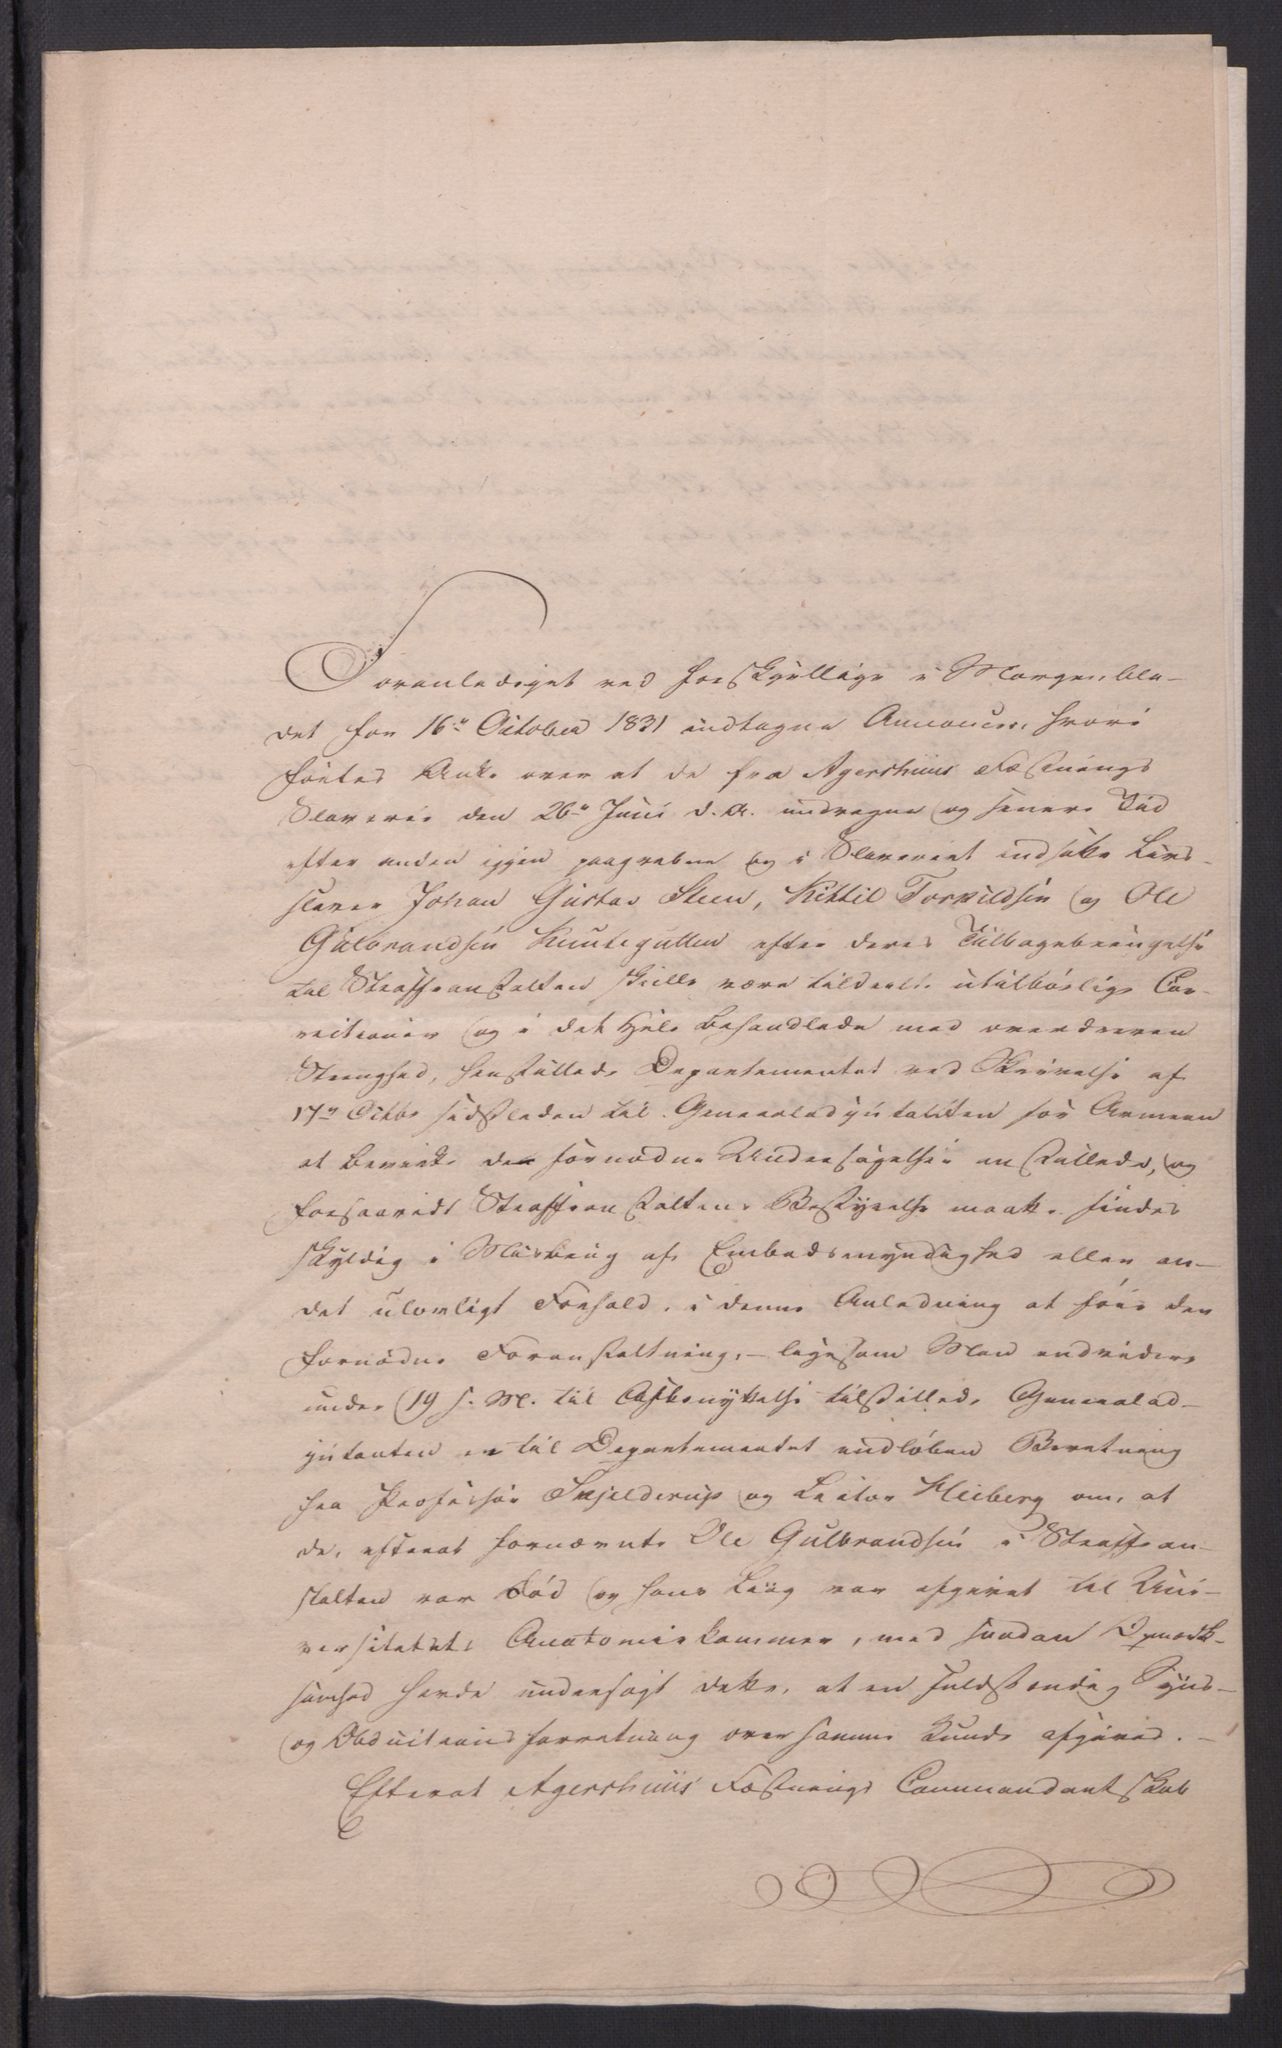 Foranlediget ved forskjellige i Morgenbla-
det for 16n October 1831 indtagne Annoncer, hvori
føres Anke over at de fra Agershuus Fæstnings
Slaverie den 26n Juni d. A. undvegne og senere Tid
efter anden igjen paagrebne og i Slaveriet indsatte Livs-
slaver Johan Gustav Steen, Kittil Torkildsen og Ole
Gulbrandsen Knutegutten efter deres Tilbagebringelse
til Straffeanstalten skulle være tildeelte utilbørlige Cor-
rectioner og i det Hele behandlede med overdreven
Strenghed, henstillede Departementet ved Skrivelse af
17n Octbr sidstleden til Generaladjutanten for Armeen
at bevirke den fornødne Undersøgelse anstillede, og
forsaavidt Straffeanstaltens Bestyrelse maatte findes
skyldig i Misbrug af Embedsmyndighed eller an-
det ulovligt Forhold, i denne Anledning at føie den
fornødne Foranstaltning, - ligesom Man endvidere
under 19 s. M. til Afbenyttelse tilstillede Generalad-
jutanten en til Departementet indløben Beretning
fra Professor Skjelderup og Lector Heiberg om, at
de, efterat fornævnte Ole Gulbrandsen i Straffean-
stalten var død og hans Liig var afgivet til Uni-
versitetets Anatomiekammer, med saadan Opmærk-
somhed havde undersøgt dette, at en fuldstændig Syns-
og Obductionsforretning over samme kunde afgives. -
Efterat Agershuus Fæstnings Commandantskab